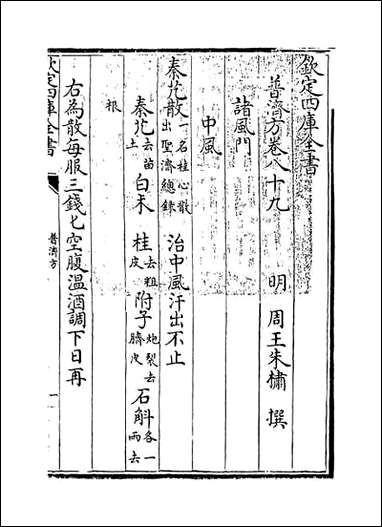 欽定四庫全書
普濟方卷八十九
明　周王朱橚　撰
諸風門
中風
秦艽散一名桂心散出聖濟總錄　治中風汗出不止
秦艽去苗土　白朮　桂去粗皮　附子炮裂去臍皮　石斛各一兩去
根
右為散每服三錢匕空腹溫酒調下日再
欽定四庫全書
普濟方
一